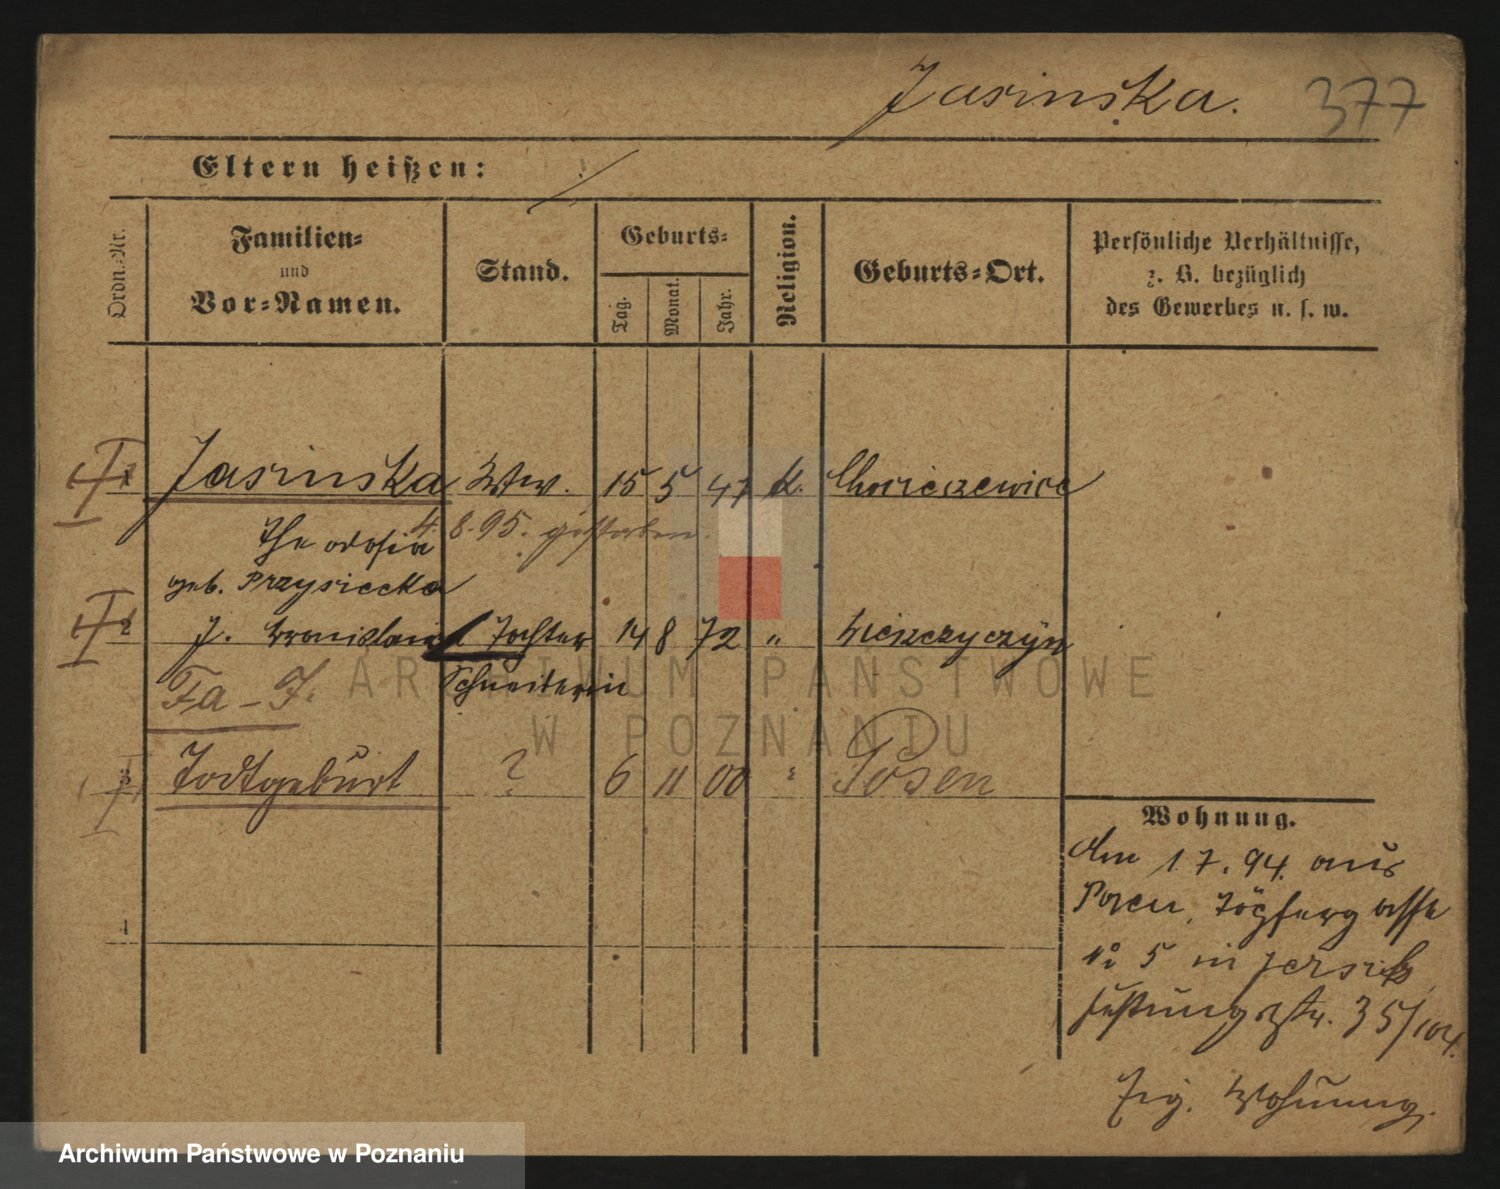 Jasinska.
377
Eltern heißen:
Ordn.-Nr.
Familien-
und
Vor-Namen.
Stand.
Geburts-
Tag.
Monat.
Jahr.
Religion.
Geburts-Ort.
Persönliche Verhältnisse,
z. B. bezüglich
des Gewerbes u. s. w.
1 Jasinska Wtw. 15 5 47 K.
4.8.95. gestorben.
Theodosia
geb. Przysiecka
2 J. Bronislawa Tochter 14 8 72 "
Schneiderin
Fa - J.
3 Todtgeburt ? 6 11 00 " Posen
Wohnung.
Am 1.7.94. aus
Posen, Töpfergasse
No 5 in Jersitz
Festungsstr. 35/104.
Eig. Wohnung.
ARCHIWUM PAŃSTWOWE
W POZNANIU
Archiwum Państwowe w Poznaniu